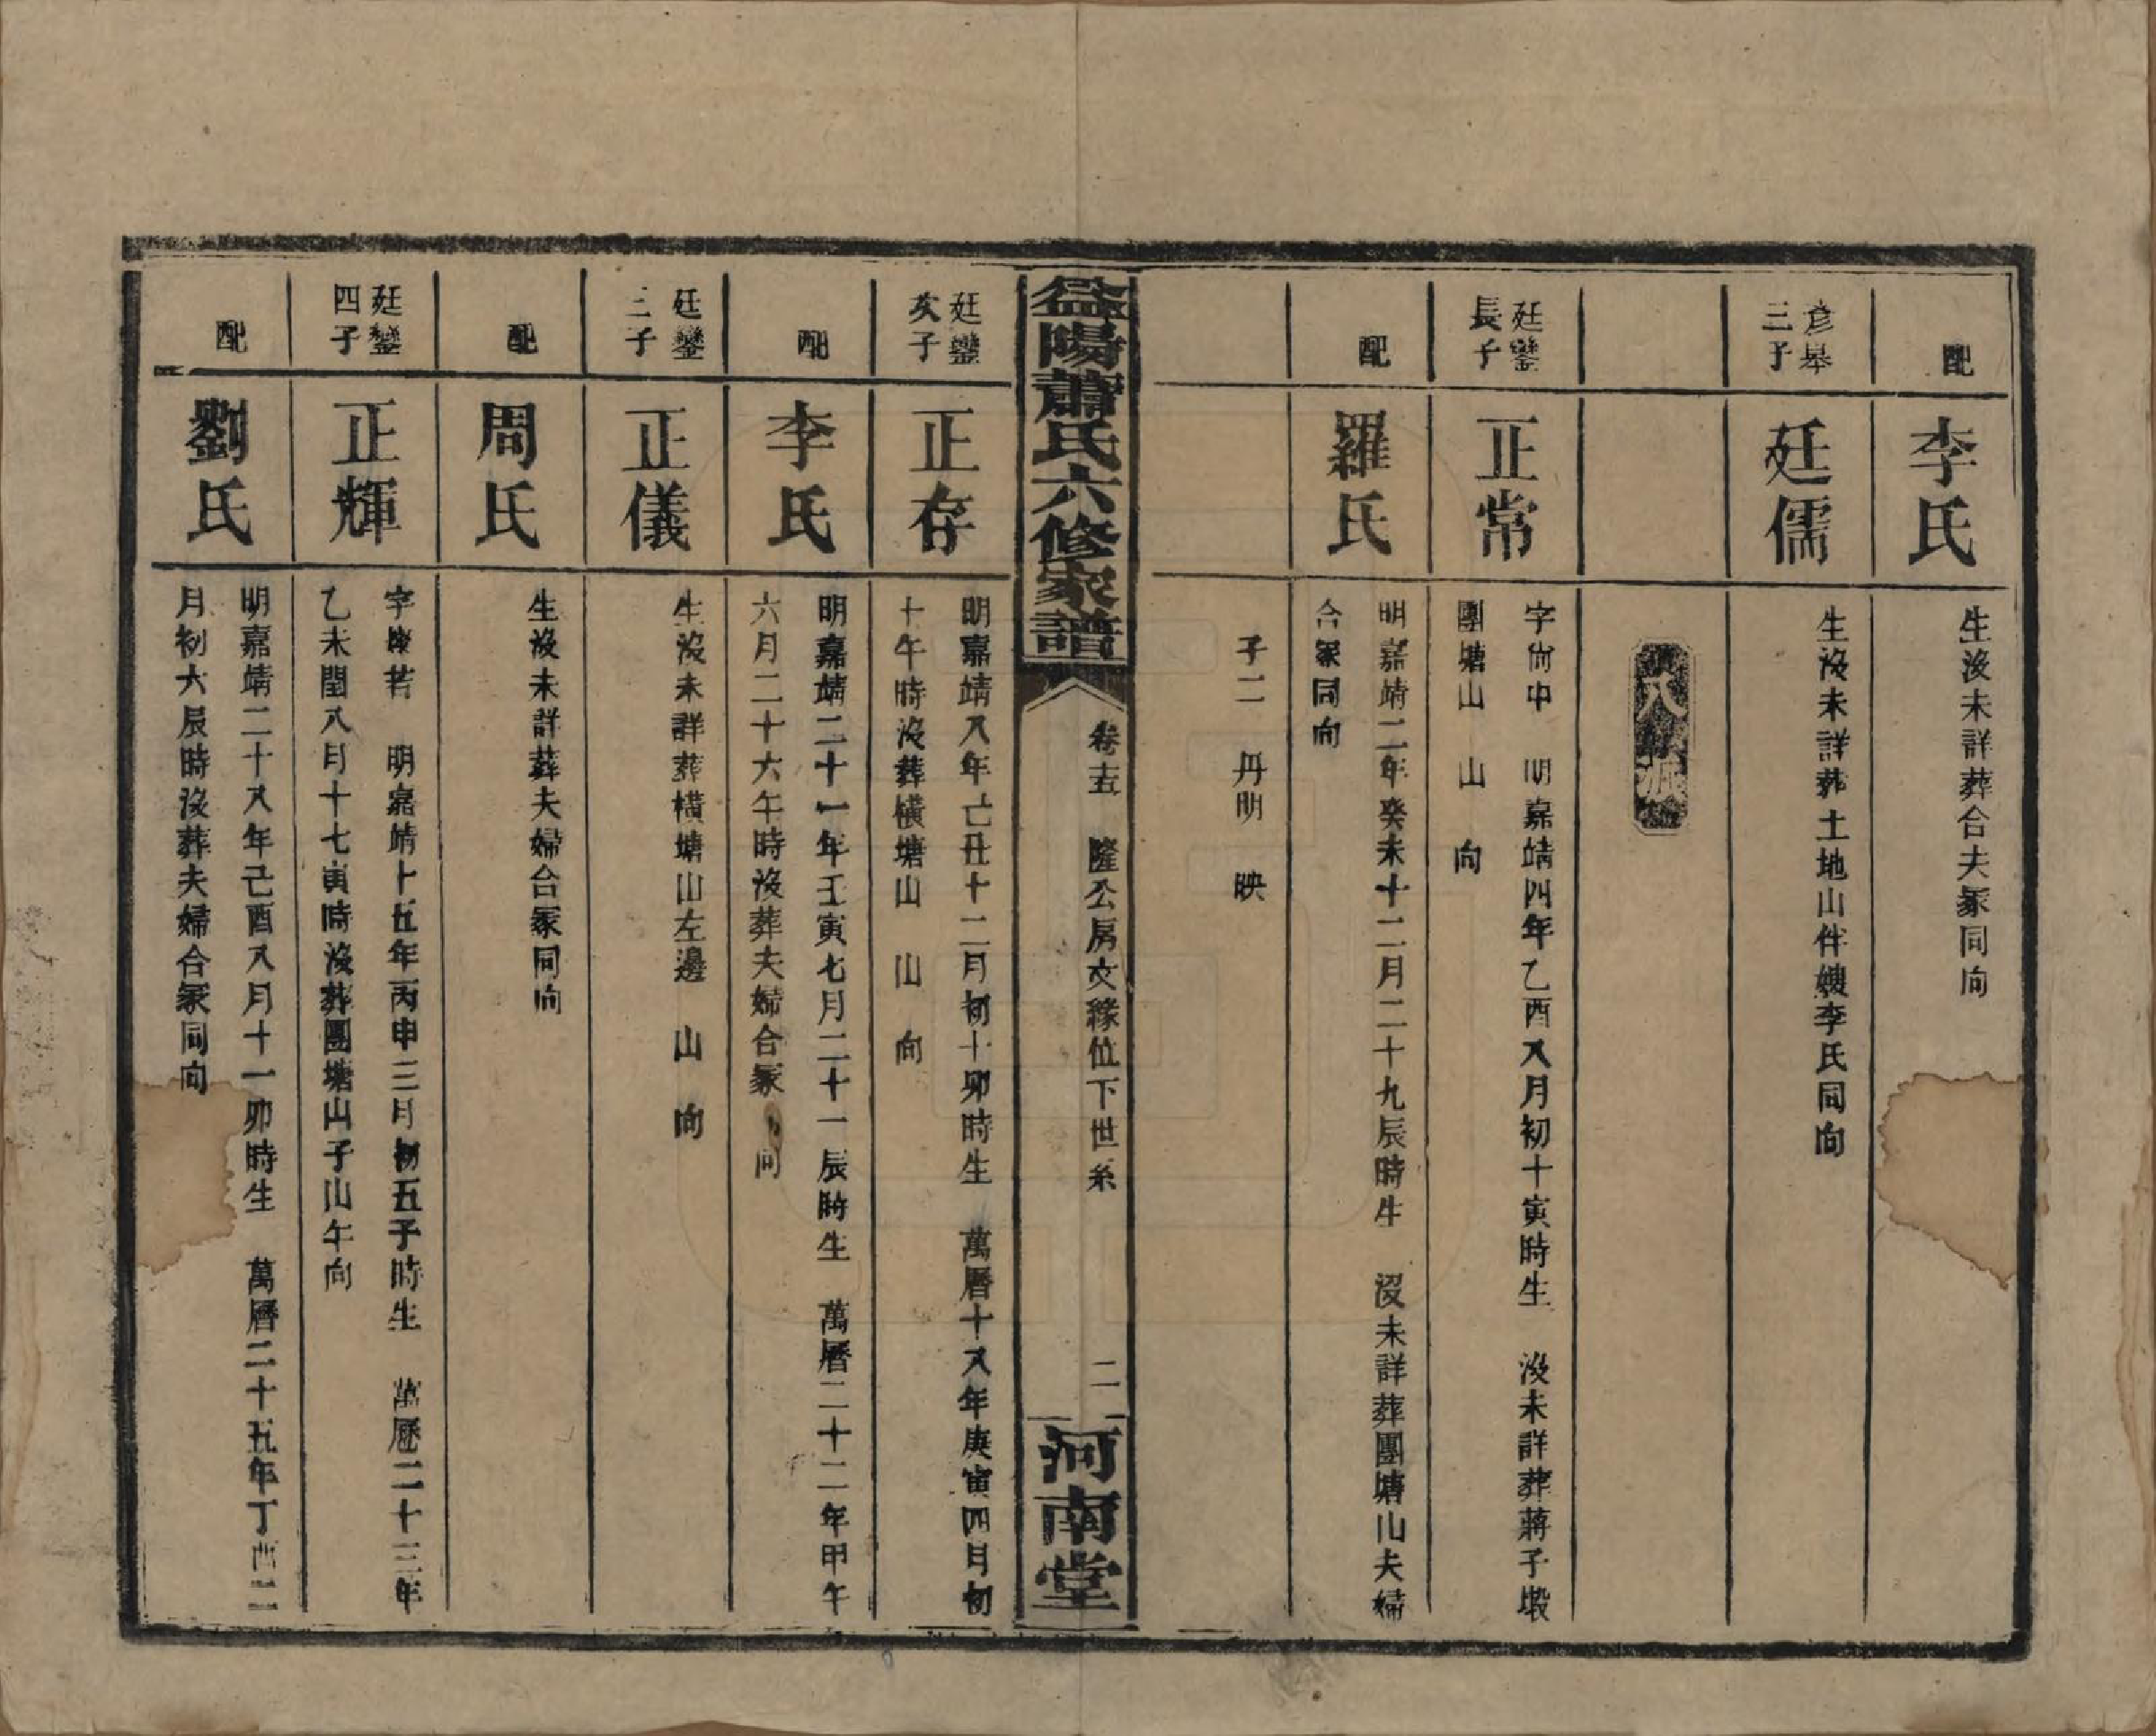 配
李氏
生沒未詳葬合夫冢同向
彥舉
三子
廷儒
生沒未詳葬土地山伴嫂李氏同向
八派
廷鑾
長子
正常
字尙中 明嘉靖四年乙酉八月初十寅時生 沒未詳葬蔣子塅
團塘山 山 向
配
羅氏
明嘉靖二年癸未十二月二十九辰時生 沒未詳葬團塘山夫婦
合冢同向
子二 丹明 映
益陽蕭氏六修家譜
卷十五 隆公房文緣位下世系
二
河南堂
廷鑾
次子
正存
明嘉靖八年己丑十二月初十卯時生 萬曆十八年庚寅四月初
十午時沒葬橫塘山 山 向
配
李氏
明嘉靖二十一年壬寅七月二十一辰時生 萬曆二十二年甲午
六月二十六午時沒葬夫婦合冢 向
廷鑾
三子
正儀
生沒未詳葬橫塘山左邊 山 向
配
周氏
生沒未詳葬夫婦合冢同向
廷鑾
四子
正輝
字 若 明嘉靖十五年丙申三月初五子時生 萬歷二十三年
乙未閏八月十七寅時沒葬團塘山子山午向
配
劉氏
明嘉靖二十八年己酉八月十一卯時生 萬曆二十五年丁酉二
月初六辰時沒葬夫婦合冢同向